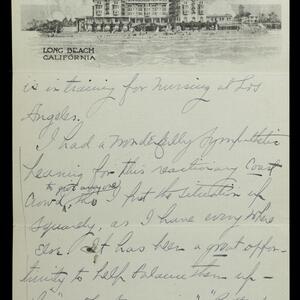 LONG BEACH
CALIFORNIA
is in training for Nursing at Los
Angeles.
I had a wonderfully sympathetic
hearing for this reactionary Coast
Crowd, tho I put the situation up
squarely, as I have everywhere
else. It has been a great oppor-
tunity to help balance them up -